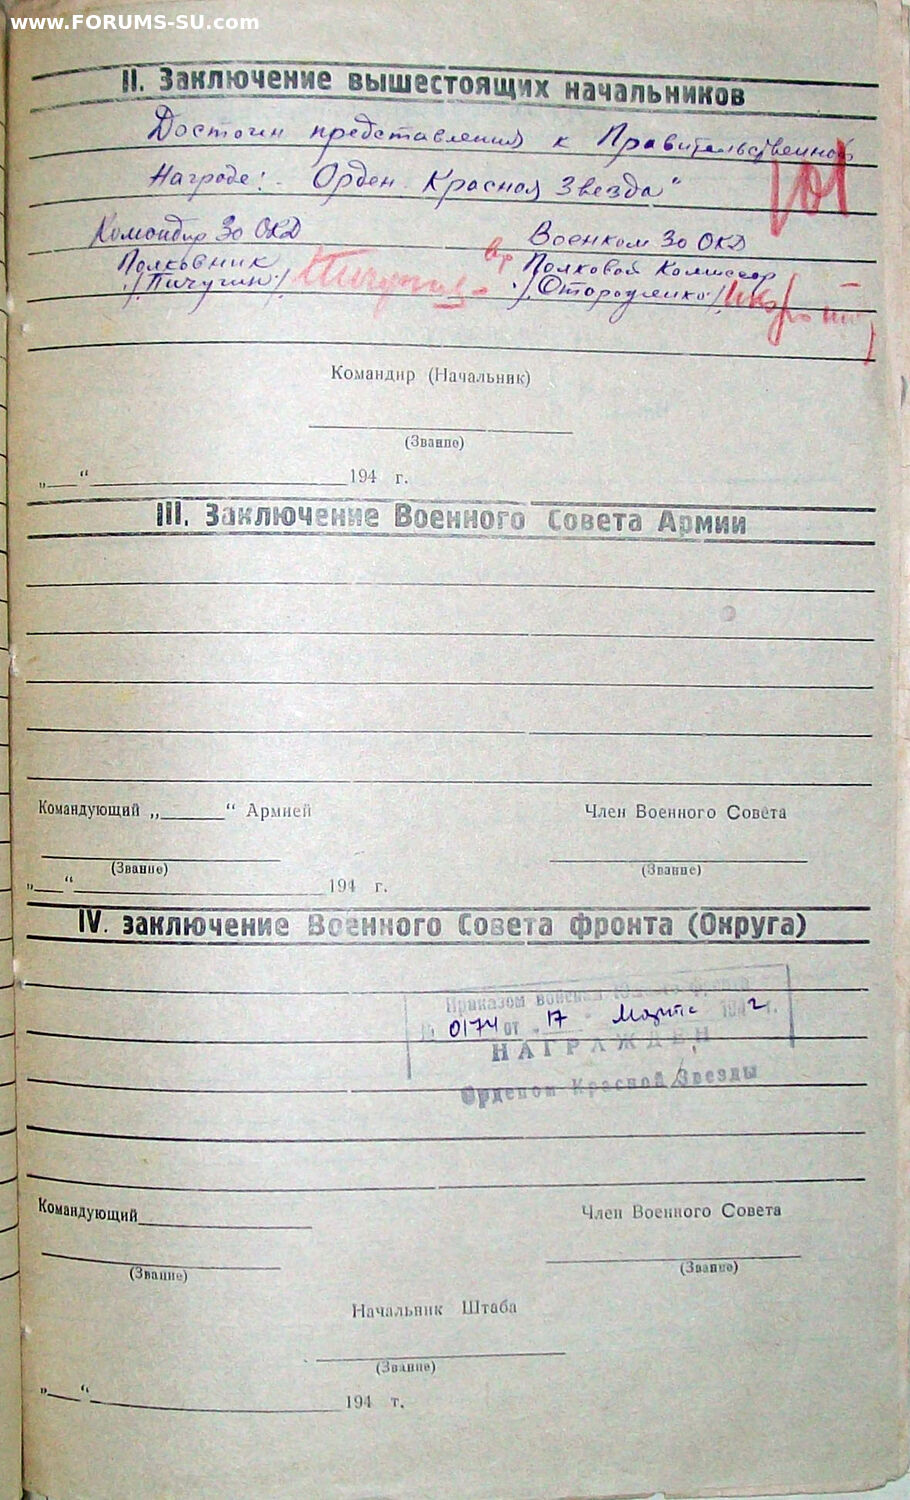 www.FORUMS-SU.com
II. Заключение вышестоящих начальников
Достоин представления к Правительственной
Награде: Орден „Красная Звезда"
Командир 30 ОКД Военком 30 ОКД
Полковник вр Полковой Комиссар
/Пичугин/ Пичугин /Отородченко/
Командир (Начальник)
(Звание)
„ “ 194 г.
III. Заключение Военного Совета Армии
Командующий „ “ Армией Член Военного Совета
(Звание) (Звание)
„ “ 194 г.
IV. заключение Военного Совета фронта (Округа)
Приказом войскам Южного фронта
№ 0174 от „17" Марта 1942 г.
НАГРАЖДЕН
Орденом Красной Звезды
Командующий Член Военного Совета
(Звание) (Звание)
Начальник Штаба
(Звание)
„ “ 194 г.